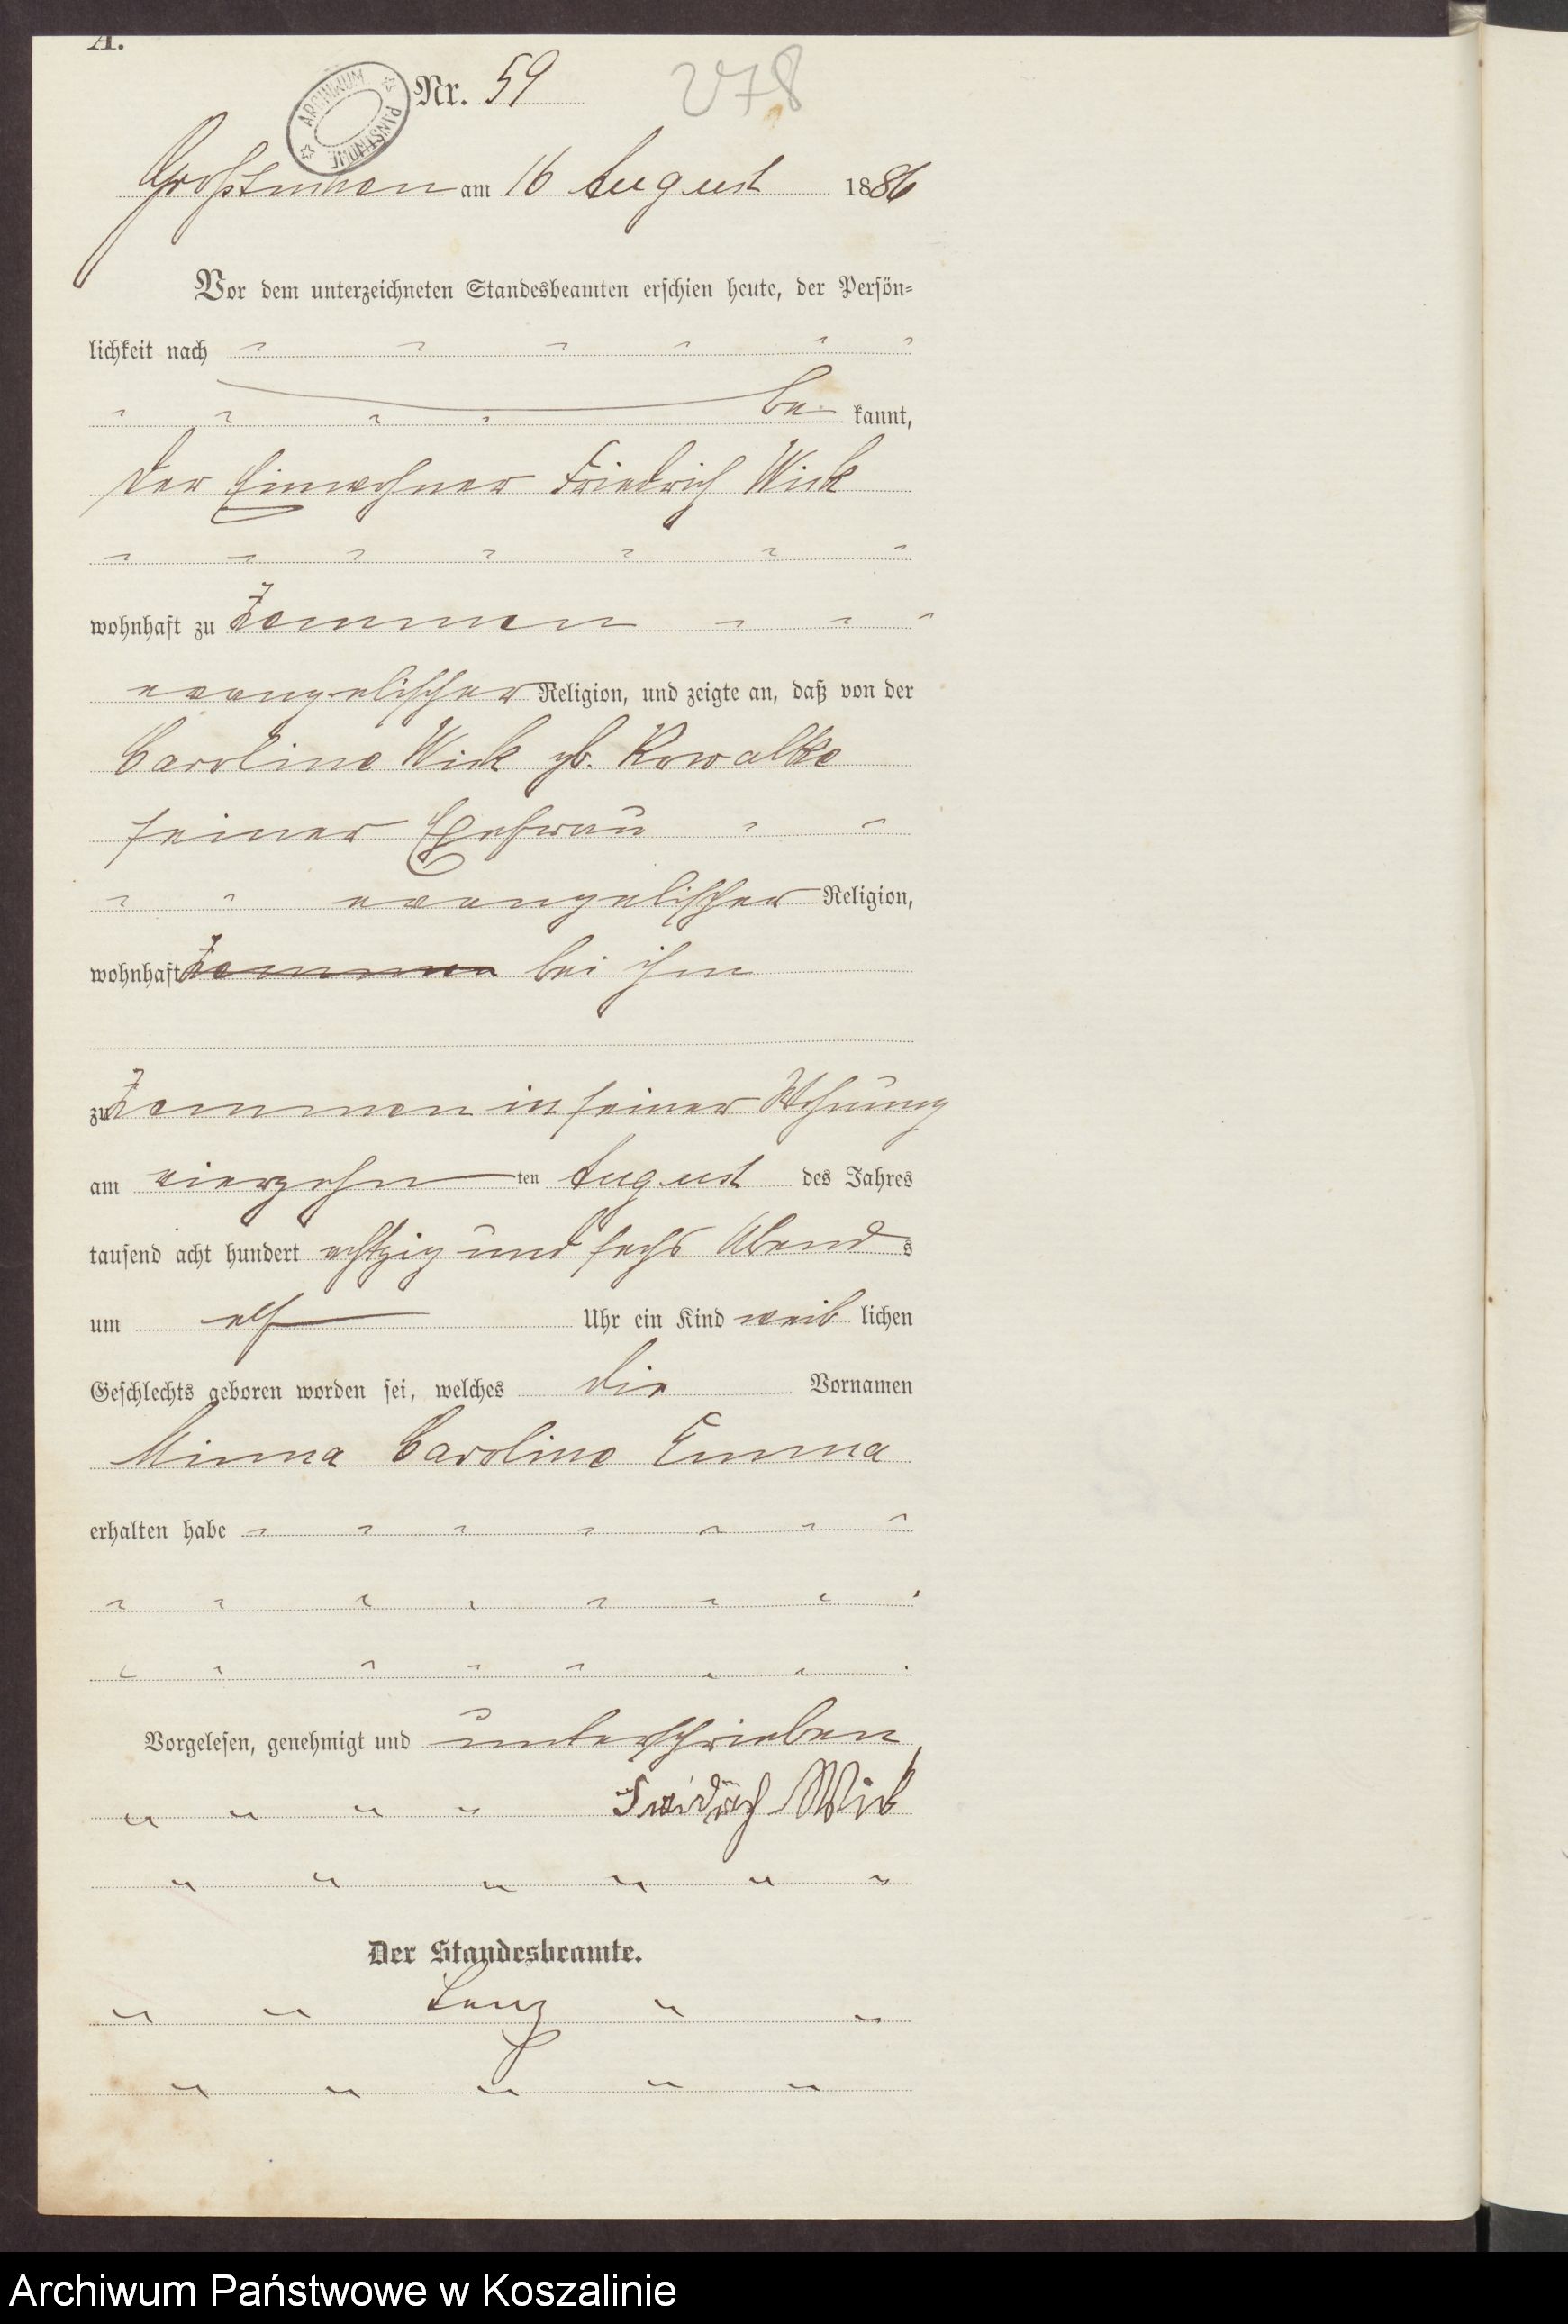 A.
ARCHIWUM PAŃSTWOWE
Nr. 59
278
Großtuchen am 16 August 1886
Vor dem unterzeichneten Standesbeamten erschien heute, der Persön-
lichkeit nach
be kannt,
der Einwohner Friedrich Wick
wohnhaft zu Zemmen
evangelischer Religion, und zeigte an, daß von der
Caroline Wick gb. Kowalke
seiner Ehefrau
evangelischer Religion,
wohnhaft Zemmen bei ihm
zu Zemmen in seiner Wohnung
am vierzehn ten August des Jahres
tausend acht hundert achtzig und sechs Abend s
um elf Uhr ein Kind weib lichen
Geschlechts geboren worden sei, welches die Vornamen
Minna Caroline Emma
erhalten habe
Vorgelesen, genehmigt und unterschrieben
Friedrich Wick
Der Standesbeamte.
Archiwum Państwowe w Koszalinie